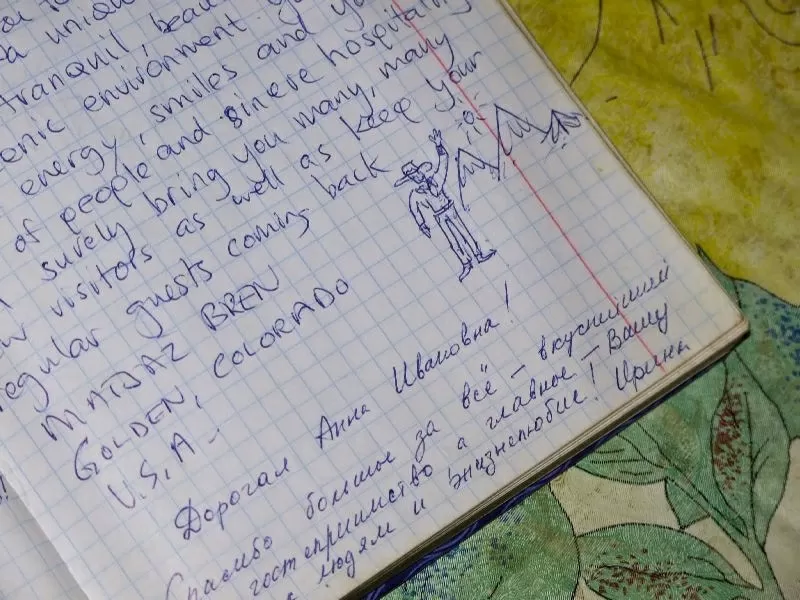 a uniqu
tranquil, beau
enic environment.
energy, smiles and yo
of people and sinere hospitality
surely bring you many, many
visitors as well as keep your
regular guests coming back
MATJAZ BREN
GOLDEN, COLORADO
U.S.A.
Дорогая Анна Ивановна!
Спасибо большое за всё – вкуснейший
гостеприимство, а главное – Вашу
людям и жизнелюбие! Ирина